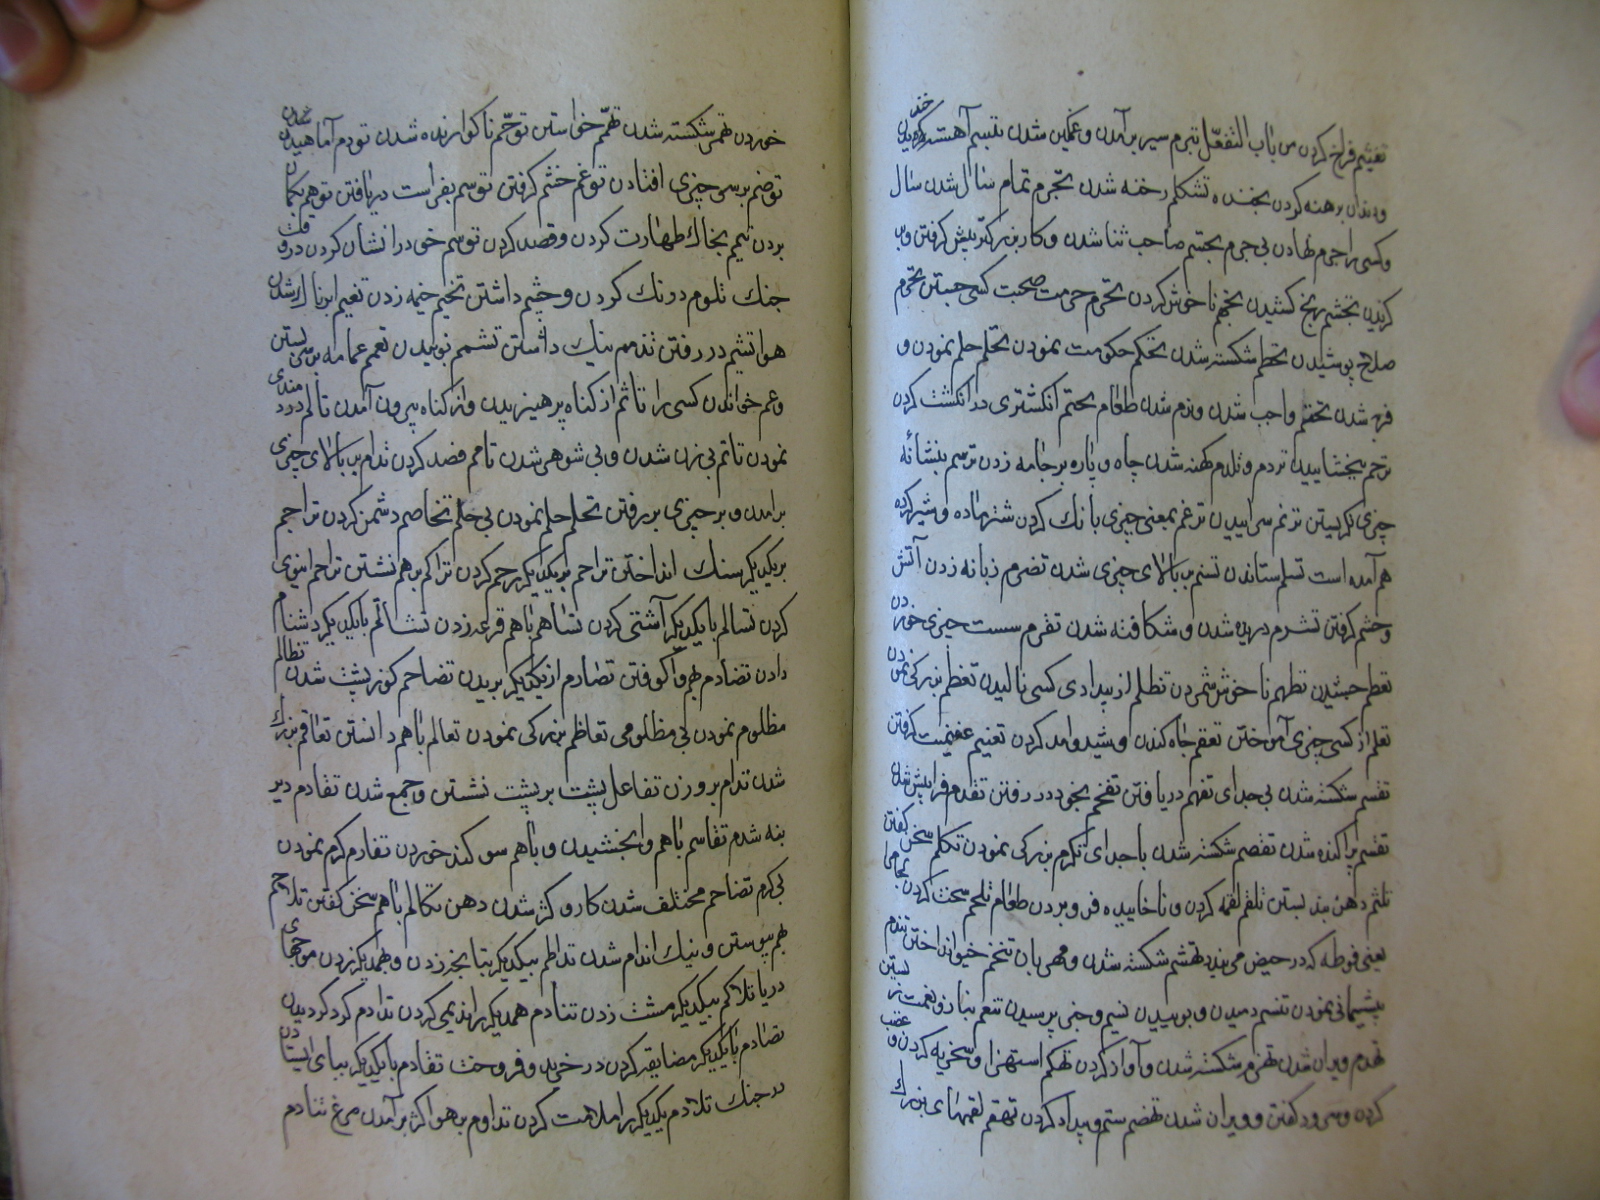 تغیثم فراخ کردن من باب التفعّل تبرم سیر برآمدن و غمگین شدن تبسم آهسته خندیدن
و دندان برهنه کردن بخنده تشکلم رخنه شدن تجرم تمام سال شدن سال
و کسی را جرم نهادن بی جرم تجشم صاحب ثنا شدن و کار بزرکتر پیش کرفتن و بر
کزیدن تجشم رنج کشیدن تجهم ناخوش کردن تحرم حرمت صحبت کسی جستن تحرم
صلاح پوشیدن تحطم شکسته شدن تحکم حکومت نمودن تحلم حلم نمودن و
فربه شدن تحتم واجب شدن و نرم شدن طعام تختم انکشتری در انکشت کردن
ترحم بخشاییدن تردم و تلدم کهنه شدن چاه و پاره بر جامه زدن ترسم بنشانه
چیزی نکریستن ترنم سراییدن ترغم بمعنی چیزی بانک کردن شتر ماده و شیر کرده
هم آمده است تسلم ستاندن تسنم ببالای چیزی شدن تضرم زبانه زدن آتش
و خشم کرفتن تشرم دریده شدن و شکافته شدن تقرم سست چیزی خوردن
تعظم تظهم ناخوش شمردن تظلم از بیدادی کسی نالیدن تعظم بزرکی نمودن
تعلم از کسی چیزی آموختن تعقم چاه کندن تغنیم غنیمت کرفتن
تفسم شکسته شدن بی جدای تفهم دریافتن تفخم بخود در رفتن تقدم فرا پیش شدن
تقسم پراکنده شدن تقصم شکسته شدن با جدای تکرم بزرکی نمودن تکلم سخن کفتن
تلثم دهن بند بستن تلقم لقمه کردن و ناخاییده فرو بردن طعام تلحم سخت کردن
یعنی فوطه که در حیض می بندد تهشم شکسته شدن و مهربان تنخم خیو انداختن تندم
پشیمانی نمودن تنسم دمیدن و بوییدن نسیم و خبر پرسیدن تنعم بناز و نعمت زیستن
تهدم ویران شدن تهزم شکسته شدن و آواز کردن تهکم استهزا و سخریه کردن و عقب
کردن و سرود کفتن و ویران شدن تهضم ستم و بیداد کردن تهقم لقمهای بزرک
خوردن تهمم شکسته شدن تهمّم خواستن توخّم ناکوارنده شدن تودم آماهیدن
توضم بر سر چیزی افتادن توغم خشم کرفتن توسم بفراست دریافتن توهم بکمان
بردن تیمم بخاک طهارت کردن و قصد کردن توسم خود را نشان کردن در وقت
جنک تلوم درنک کردن و چشم داشتن تخیم خیمه زدن تغیم ابرناک شدن
هوا تشیم در رفتن تذمم ننک داشتن تشمم بوییدن تعمم عمامه بر سر بستن
و عم خواندن کسی را تأثم از کناه پرهیزیدن و از کناه بیرون آمدن تألم دردمندی
نمودن تأیم بی زن شدن و بی شوهر شدن تأمم قصد کردن تدأم ببالای چیزی
برامدن و بر چیزی بر رفتن تحلم حلم نمودن بی حلم تخاصم دشمن کردن تراجم
بر یکدیکر سنک انداختن تراحم بر یکدیکر رحم کردن تراکم برهم نشستن تزاحم انبوی
کردن تسالم با یکدیکر آشتی کردن تساهم باهم قرعه زدن تشاتم با یکدیکر دشنام
دادن تصادم بهم واکوفتن تصارم از یکدیکر بریدن تضاحم کوژ پشت شدن تظالم
مظلوم نمودن بی مظلومی تعاظم بزرکی نمودن تعالم باهم دانستن تفاقم بزرک
شدن تدأم بر وزن تفاعل پشت بر پشت نشستن و جمع شدن تقادم دیر
بنه شدم تقاسم باهم وابخشیدن و باهم سوکند خوردن تکارم کرم نمودن
بی کرم تضاجم مختلف شدن کار و کژ شدن دهن تکالم باهم سخن کفتن تلاحم
بهم پیوستن و نیک اندام شدن تلاطم بیکدیکر تبانجه زدن و بهمدیکر زدن موجهای
دریا تلاکم بیکدیکر مشت زدن تنادم همدیکر را ندیمی کردن تدادم کرد کردیدن
تصادم با یکدیکر مضایقه کردن در خرید و فروخت تقادم با یکدیکر بپای ایستادن
در جنک تلادم یکدیکر را ملامت کردن تداوم بر هوا کژ برآمدن مرغ تنادم